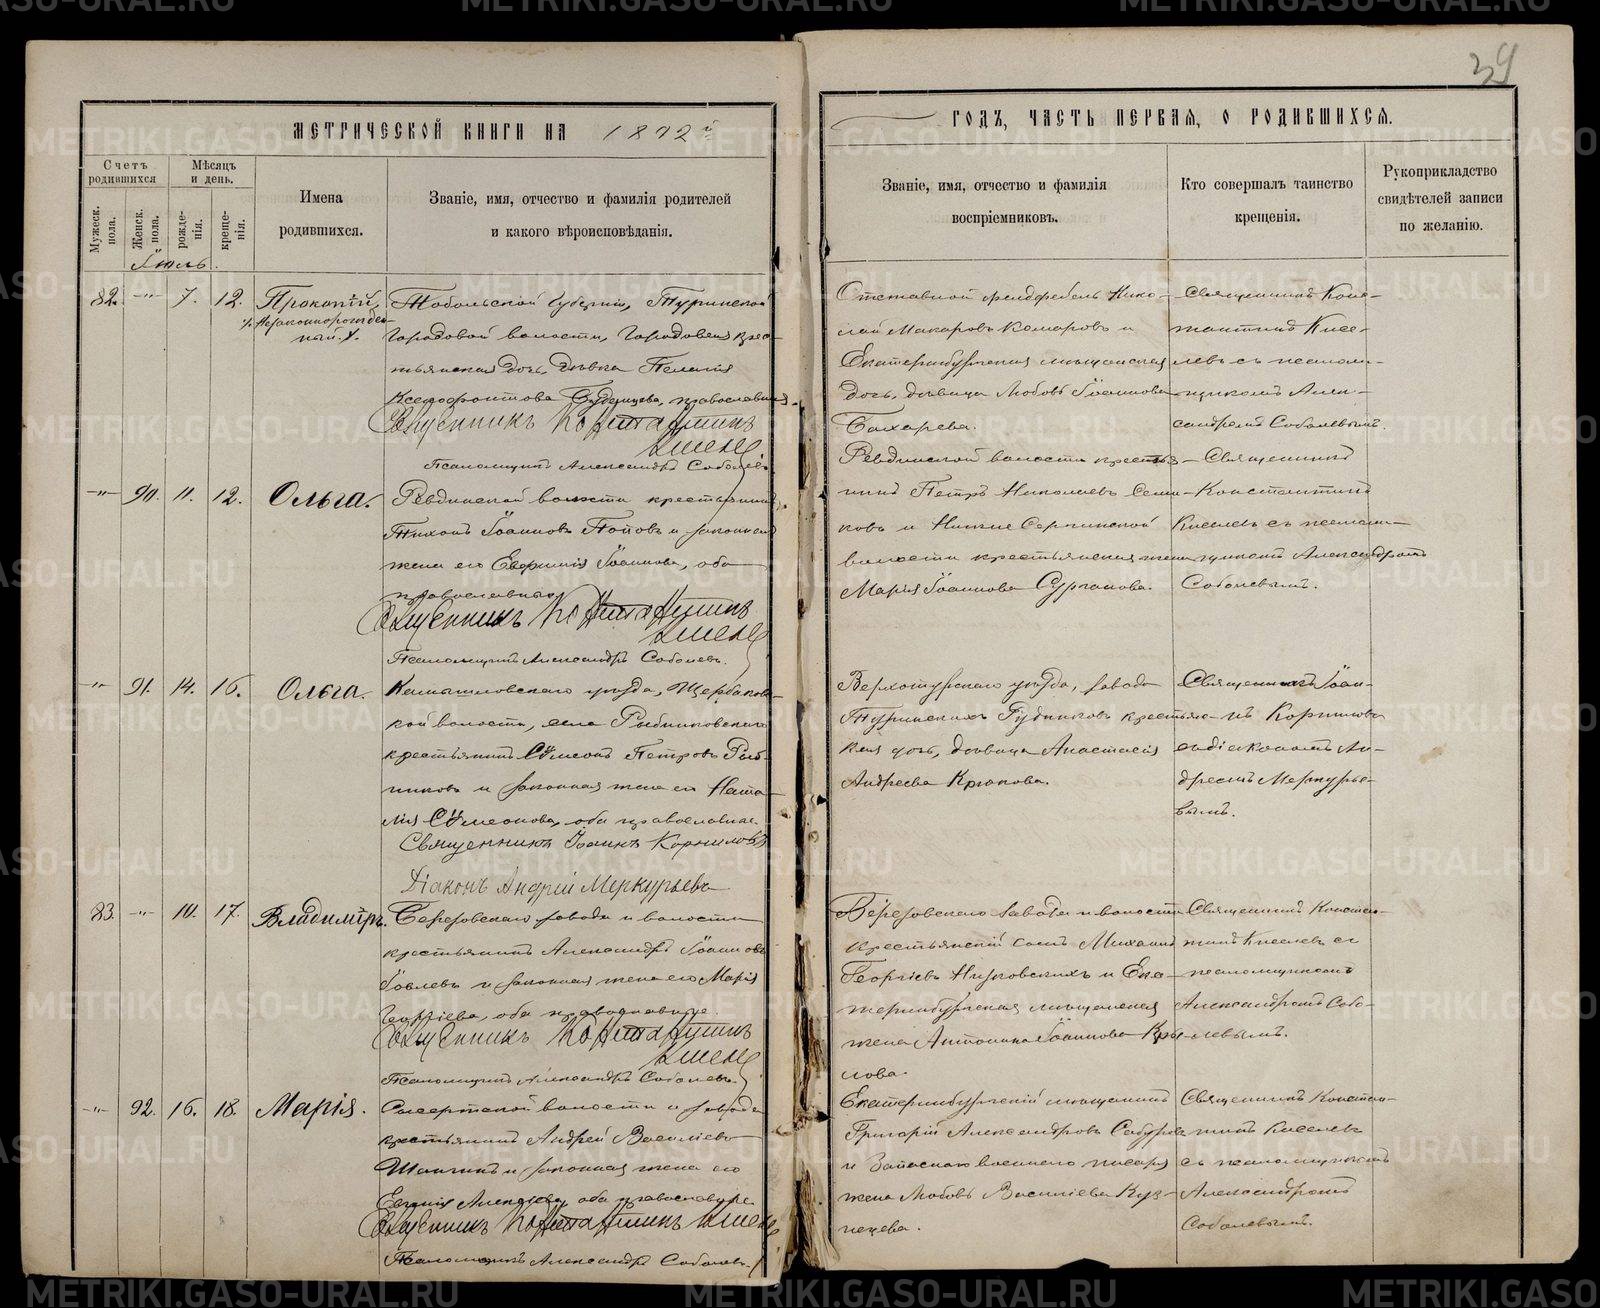 39
МЕТРИЧЕСКОЙ КНИГИ НА 1892 й
ГОДЪ, ЧАСТЬ ПЕРВАЯ, О РОДИВШИХСЯ.
Счетъ родившихся
Мѣсяцъ и день.
Мужеск. пола.
Женск. пола.
рожде-нія.
креще-нія.
Имена
родившихся.
Званіе, имя, отчество и фамилія родителей
и какого вѣроисповѣданія.
Званіе, имя, отчество и фамилія
воспріемниковъ.
Кто совершалъ таинство
крещенія.
Рукоприкладство
свидѣтелей записи
по желанію.
Іюль.
82. -"- 7. 12. Прокопій,
незаконнорожден-
ный.
Тобольской губерніи, Туринской
Городовой волости, Городовая крес-
тьянская дочь, девка Пелагія
Ксенофонтова, православная
Священникъ Константинъ
Киселевъ
Псаломщикъ Александръ Соболевъ
Отставной фельдфебель Нико-
лай Макаровъ Комаровъ и
Екатеринбургская мѣщанская
дочь, девица Любовь Іоаннова
Бахарева.
Священникъ Конс-
тантинъ Кисе-
левъ съ псалом-
щикомъ Алек-
сандромъ Соболевымъ.
-"- 90. 11. 12. Ольга.
Ревдинской волости крестьянинъ
Тихонъ Іоанновъ Поповъ и законная
жена его Евфимія Іоаннова, оба
православные
Священникъ Константинъ
Киселевъ
Псаломщикъ Александръ Соболевъ.
Ревдинской волости крестья-
нинъ Петръ Николаевъ Семи-
ковъ и Нижне Сергинской
волости крестьянская жена
Марія Іоаннова Сурганова.
Священникъ
Константинъ
Киселевъ съ псалом-
щикомъ Александромъ
Соболевымъ.
-"- 91. 14. 16. Ольга.
Камышловскаго уѣзда, Щербаков-
ской волости, села Рыбниковскаго
крестьянинъ Сѵмеонъ Петровъ Рыб-
никовъ и законная жена его Ната-
лія Сѵмеонова, оба православные.
Священникъ Іоаннъ Корниловъ
Діаконъ Андрей Меркурьевъ
Верхотурскаго уѣзда, завода
Туринскихъ Рудниковъ крестьянс-
кая дочь, девица Анастасія
Андреева Крюкова.
Священникъ Іоан-
нъ Корниловъ
съ діакономъ Ан-
дреемъ Меркурье-
вымъ.
83. -"- 10. 17. Владиміръ.
Березовскаго завода и волости
крестьянинъ Александръ Іоанновъ
Іовлевъ и законная жена его Марія
Георгіева, оба православные.
Священникъ Константинъ
Киселевъ
Псаломщикъ Александръ Соболевъ.
Березовскаго завода и волости
крестьянскій сынъ Михаилъ
Георгіевъ и Ека-
теринбургская мѣщанская
жена Антонина Іоаннова Кры-
лова.
Священникъ Констан-
тинъ Киселевъ съ
псаломщикомъ
Александромъ Собо-
левымъ.
-"- 92. 16. 18. Марія.
Сысертской волости и завода
крестьянинъ Андрей Василіевъ
и законная жена его
Евгенія Алексіева, оба православные
Священникъ Константинъ Киселевъ
Псаломщикъ Александръ Соболевъ.
Екатеринбургскій мѣщанинъ
Григорій Александровъ Сабуровъ
и Запаснаго военнаго писаря
жена Любовь Василіева Куз-
нецова.
Священникъ Констан-
тинъ Киселевъ
съ псаломщикомъ
Александромъ
Соболевымъ.
METRIKI.GASO-URAL.RU